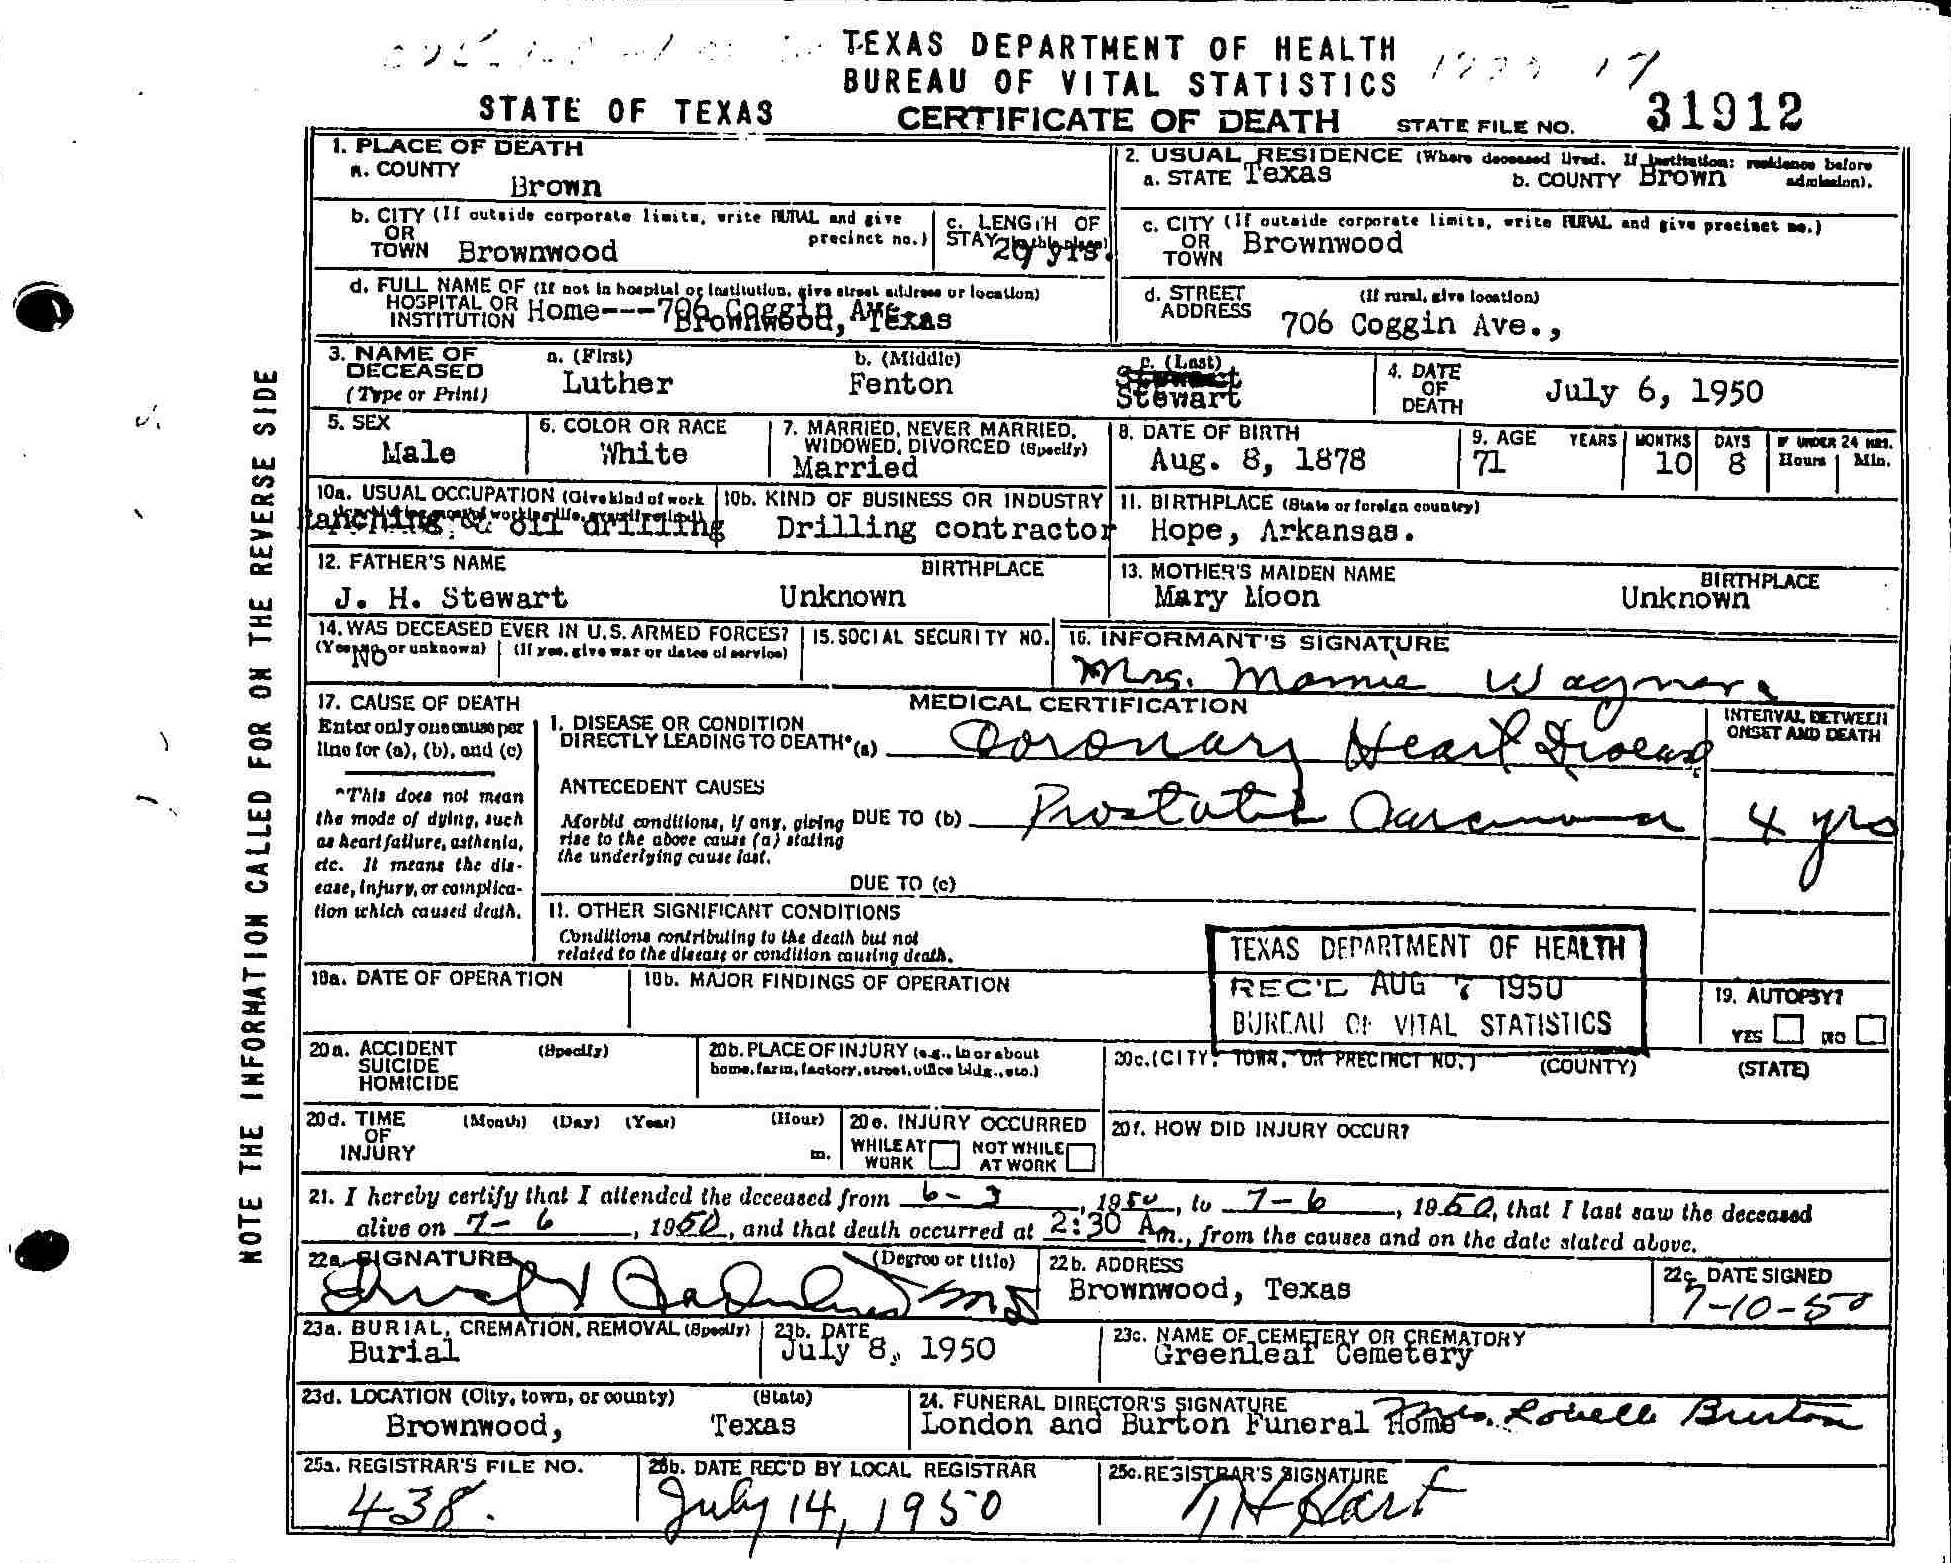 TEXAS DEPARTMENT OF HEALTH
BUREAU OF VITAL STATISTICS
STATE OF TEXAS CERTIFICATE OF DEATH STATE FILE NO. 31912
NOTE THE INFORMATION CALLED FOR ON THE REVERSE SIDE
1. PLACE OF DEATH
a. COUNTY
Brown
2. USUAL RESIDENCE (Where deceased lived. If institution: residence before admission).
a. STATE Texas b. COUNTY Brown
b. CITY (If outside corporate limits, write RURAL and give precinct no.)
OR
TOWN Brownwood
c. LENGTH OF
STAY yrs.
c. CITY (If outside corporate limits, write RURAL and give precinct no.)
OR
TOWN Brownwood
d. FULL NAME OF (If not in hospital or institution, give street address or location)
HOSPITAL OR
INSTITUTION Home---706 Coggin Ave.
Brownwood, Texas
d. STREET (If rural, give location)
ADDRESS
706 Coggin Ave.,
3. NAME OF
DECEASED
(Type or Print)
a. (First)
Luther
b. (Middle)
Fenton
c. (Last)
Stewart
4. DATE
OF
DEATH
July 6, 1950
5. SEX
Male
6. COLOR OR RACE
White
7. MARRIED, NEVER MARRIED,
WIDOWED, DIVORCED (Specify)
Married
8. DATE OF BIRTH
Aug. 8, 1878
9. AGE YEARS MONTHS DAYS IF UNDER 24 HRS.
71 10 8 Hours Min.
10a. USUAL OCCUPATION (Give kind of work
Ranching & oil drilling
10b. KIND OF BUSINESS OR INDUSTRY
Drilling contractor
11. BIRTHPLACE (State or foreign country)
Hope, Arkansas.
12. FATHER'S NAME BIRTHPLACE
J. H. Stewart Unknown
13. MOTHER'S MAIDEN NAME BIRTHPLACE
Mary Moon Unknown
14. WAS DECEASED EVER IN U.S. ARMED FORCES?
(Yes, no or unknown) (If yes, give war or dates of service)
No
15. SOCIAL SECURITY NO.
16. INFORMANT'S SIGNATURE
Mrs. Mamie Wagner.
17. CAUSE OF DEATH
Enter only one cause per
line for (a), (b), and (c)
*This does not mean
the mode of dying, such
as heart failure, asthenia,
etc. It means the dis-
ease, injury, or complica-
tion which caused death.
MEDICAL CERTIFICATION
I. DISEASE OR CONDITION
DIRECTLY LEADING TO DEATH* (a) Coronary Heart Disease
INTERVAL BETWEEN
ONSET AND DEATH
ANTECEDENT CAUSES
Morbid conditions, if any, giving
rise to the above cause (a) stating
the underlying cause last.
DUE TO (b) Prostatic Carcinoma 4 yrs
DUE TO (c)
II. OTHER SIGNIFICANT CONDITIONS
Conditions contributing to the death but not
related to the disease or condition causing death.
TEXAS DEPARTMENT OF HEALTH
REC'D AUG 7 1950
BUREAU OF VITAL STATISTICS
18a. DATE OF OPERATION
18b. MAJOR FINDINGS OF OPERATION
19. AUTOPSY?
YES NO
20a. ACCIDENT (Specify)
SUICIDE
HOMICIDE
20b. PLACE OF INJURY (e.g., in or about
home, farm, factory, street, office bldg., etc.)
20c. (CITY, TOWN, OR PRECINCT NO.) (COUNTY) (STATE)
20d. TIME (Month) (Day) (Year) (Hour)
OF
INJURY m.
20e. INJURY OCCURRED
WHILE AT
WORK
NOT WHILE
AT WORK
20f. HOW DID INJURY OCCUR?
21. I hereby certify that I attended the deceased from 6-3, 1950, to 7-6, 1950, that I last saw the deceased
alive on 7-6, 1950, and that death occurred at 2:30 Am., from the causes and on the date stated above.
22a. SIGNATURE (Degree or title)
MD
22b. ADDRESS
Brownwood, Texas
22c. DATE SIGNED
7-10-50
23a. BURIAL, CREMATION, REMOVAL (Specify)
Burial
23b. DATE
July 8, 1950
23c. NAME OF CEMETERY OR CREMATORY
Greenleaf Cemetery
23d. LOCATION (City, town, or county) (State)
Brownwood, Texas
24. FUNERAL DIRECTOR'S SIGNATURE
London and Burton Funeral Home Mrs. Lovelle Burton
25a. REGISTRAR'S FILE NO.
438.
25b. DATE REC'D BY LOCAL REGISTRAR
July 14, 1950
25c. REGISTRAR'S SIGNATURE
TH Hart